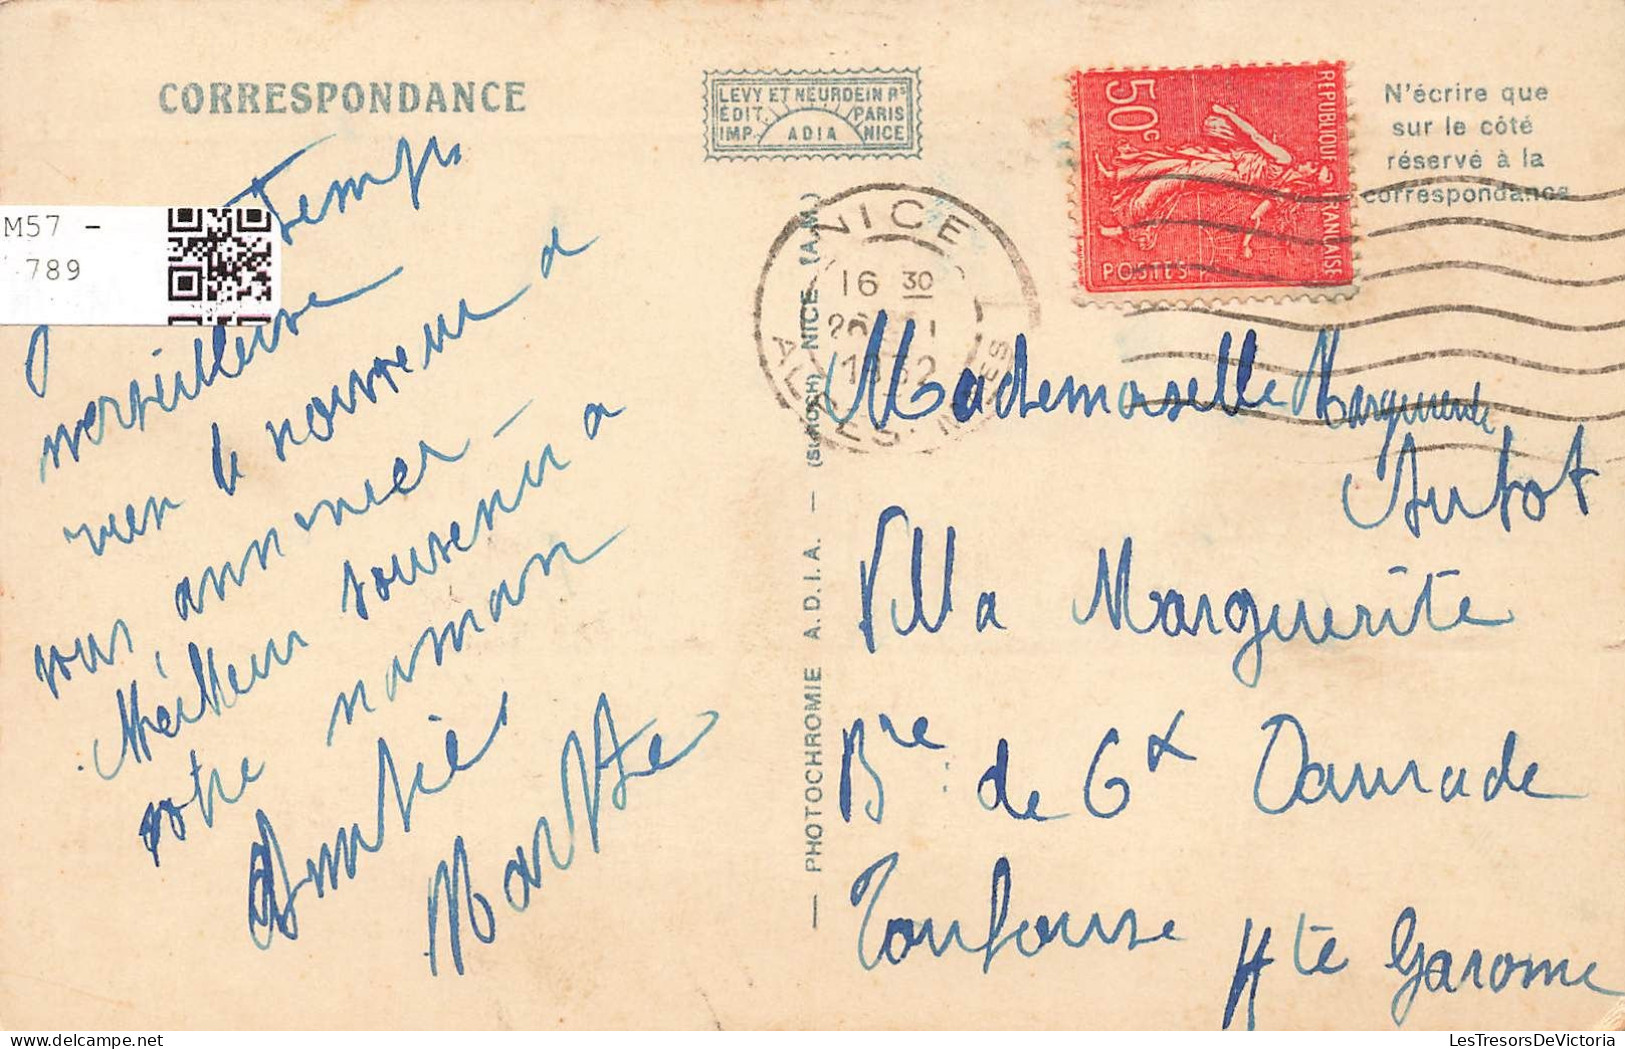 CORRESPONDANCE
LEVY ET NEURDEIN RS
EDIT. PARIS
IMP. ADIA NICE
50c
REPUBLIQUE FRANÇAISE
POSTES
N'écrire que
sur le côté
réservé à la
correspondance
M57 -
789
NICE
16 30
1932
ALPES-MMES
— PHOTOCHROMIE A.D.I.A. — (SUROCH) NICE (A.M.)
Temps
merveilleux
rien de nouveau a
vous annoncer —
Meilleur souvenir a
votre maman
Amitié
Marthe
Mademoiselle Marguerite
Autot
Villa Marguerite
Bre de Gx Daurade
Toulouse
Hte Garonne
LesTresorsDeVictoria